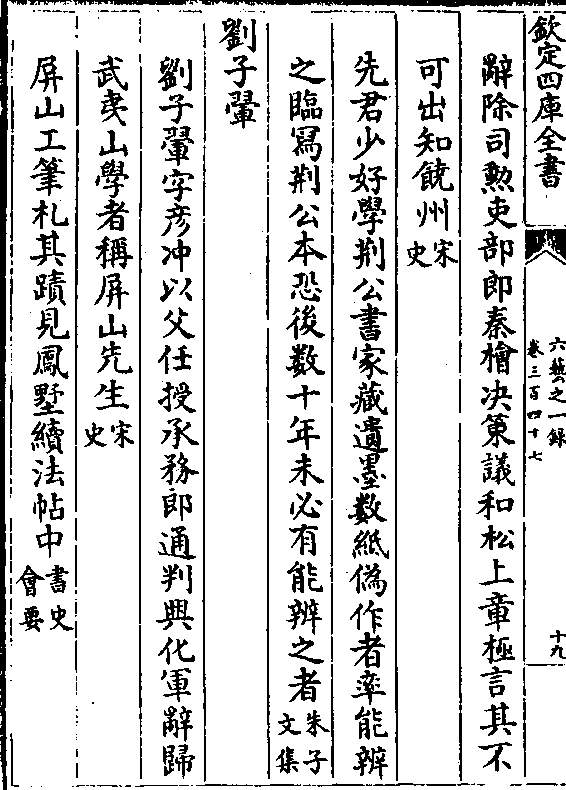 欽定四庫全書
六藝之一録
卷三百四十七
十九
辭除司勲吏部郎秦檜決策議和松上章極言其不
可出知饒州宋史
先君少好學荆公書家藏遺墨数紙偽作者率能辨
之臨寫荆公本恐後数十年未必有能辨之者朱子文集
劉子翬
劉子翬字彦冲以父任授承務郎通判興化軍辭歸
武夷山學者稱屏山先生宋史
屏山工筆札其蹟見鳳墅續法帖中書史會要